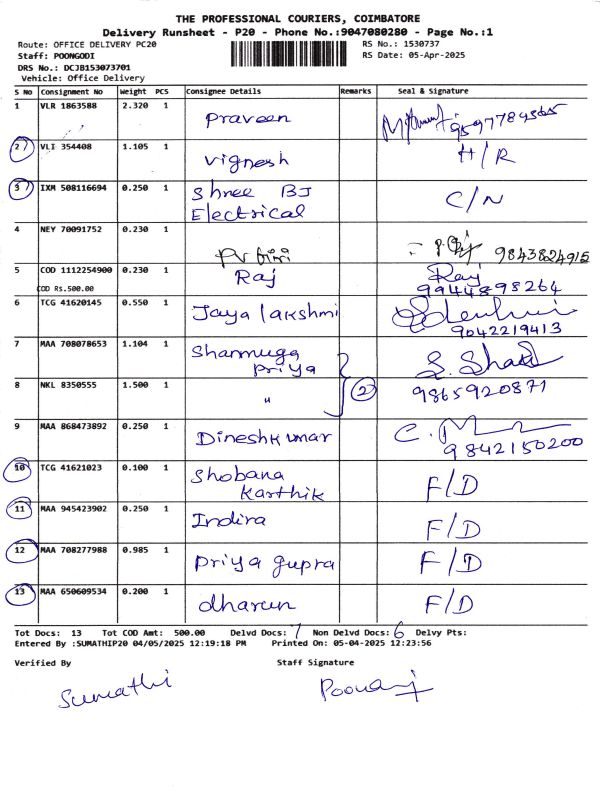 THE PROFESSIONAL COURIERS, COIMBATORE
Delivery Runsheet - P20 - Phone No.:9047080280 - Page No.:1
Route: OFFICE DELIVERY PC20 RS No.: 1530737
Staff: POONGODI RS Date: 05-Apr-2025
DRS No.: DCJB153073701
Vehicle: Office Delivery
S No Consignment No Weight PCS Consignee Details Remarks Seal & Signature
1 VLR 1863588 2.320 1 Praveen 9597784565
2 VLI 354408 1.105 1 Vignesh H/R
3 IXM 508116694 0.250 1 Shree BJ C/N
Electrical
4 NEY 70091752 0.230 1 9843824915
5 COD 1112254900 0.230 1 Raj Raj
COD Rs.500.00 9944898264
6 TCG 41620145 0.550 1 Jaya lakshmi
9042219413
7 MAA 708078653 1.104 1 Shanmuga
Priya
8 NKL 8350555 1.500 1 " 2 9865920871
9 MAA 868473892 0.250 1 Dineshkumar
9842150200
10 TCG 41621023 0.100 1 Shobana F/D
Karthik
11 MAA 945423902 0.250 1 Indira F/D
12 MAA 708277988 0.985 1 Priya gupra F/D
13 MAA 650609534 0.200 1 dharun F/D
Tot Docs: 13 Tot COD Amt: 500.00 Delvd Docs: 7 Non Delvd Docs: 6 Delvy Pts:
Entered By :SUMATHIP20 04/05/2025 12:19:18 PM Printed On: 05-04-2025 12:23:56
Verified By Staff Signature
Sumathi